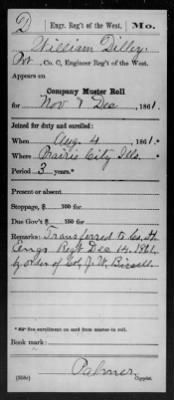 D | Engr. Reg't of the West. | Mo.
William Dilley
Pvt, Co. C, Engineer Reg't of the West.
Appears on
Company Muster Roll
for Nov & Dec, 1861.
Joined for duty and enrolled:
When Aug. 4, 1861.*
Where Prairie City Ills.
Period 3 years.*
Present or absent
Stoppage, $ 100 for
Due Gov't $ 100 for
Remarks: Transferred to Co. H.
Engr Regt Dec 14. 1861.
by order of Col J. W. Bissell
* See enrollment on card from muster-in roll.
Book mark:
Palmer
(358c) Copyist.